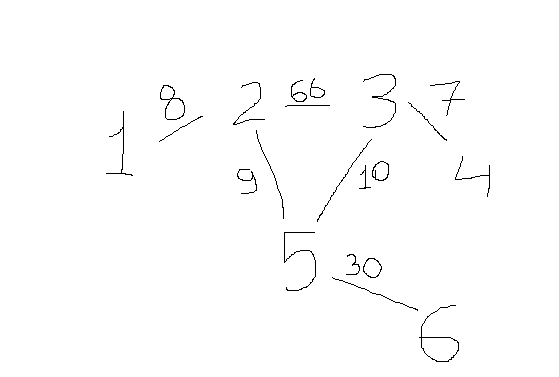 1 8 2 66 3 7
9 10 4
5 30
6